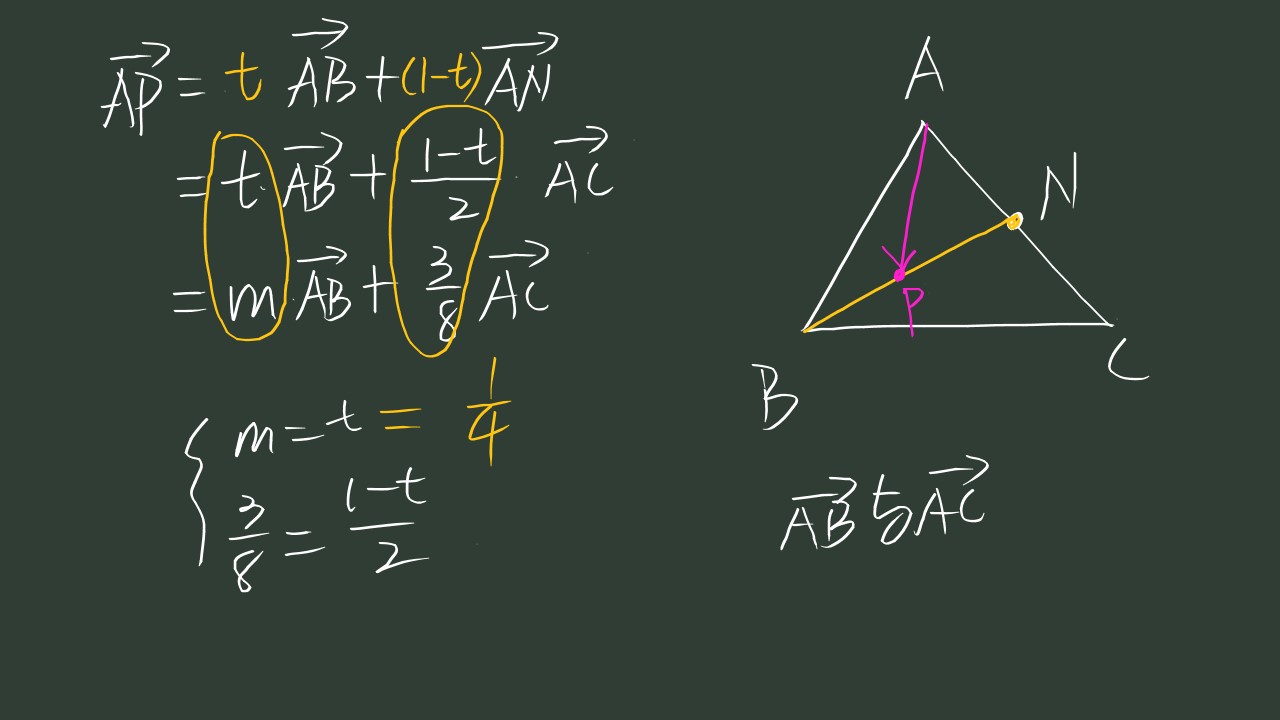 \overrightarrow{AP} = t \overrightarrow{AB} + (1-t) \overrightarrow{AN}
= t \overrightarrow{AB} + \frac{1-t}{2} \cdot \overrightarrow{AC}
= m \overrightarrow{AB} + \frac{3}{8} \overrightarrow{AC}
m = t = \frac{1}{4}
\frac{3}{8} = \frac{1-t}{2}
A
N
P
B
C
\overrightarrow{AB} 与 \overrightarrow{AC}